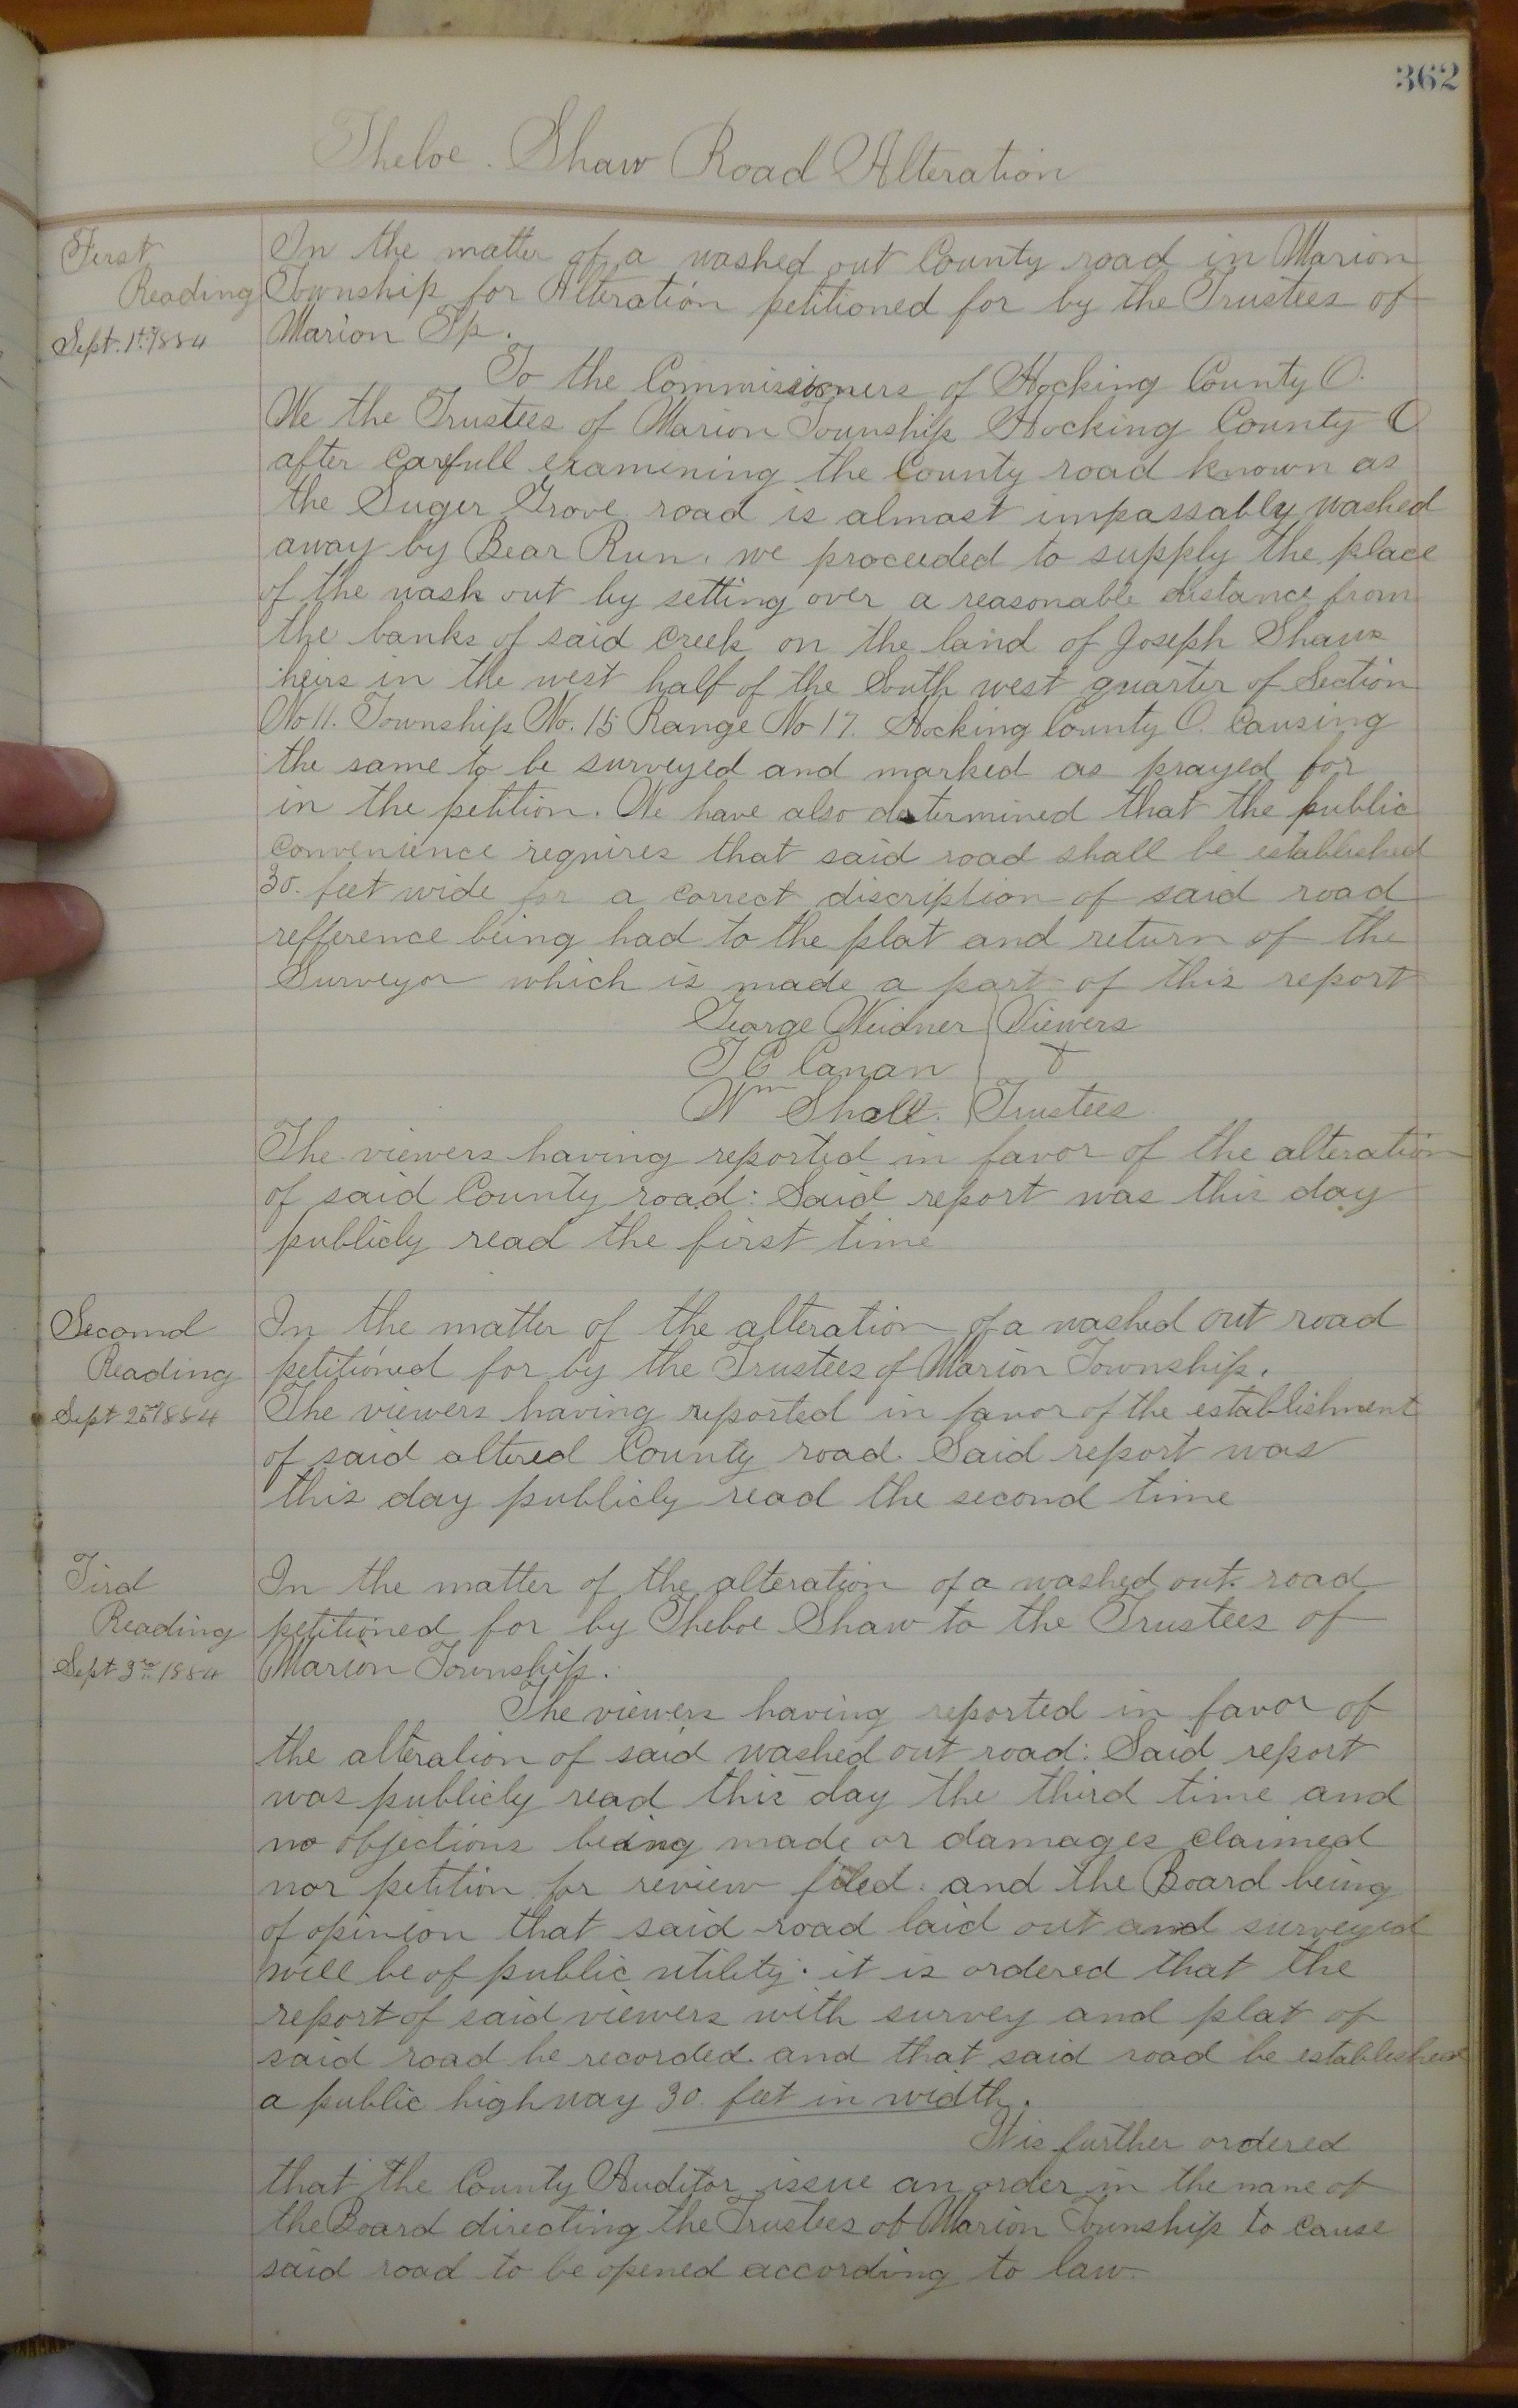 362
Theboe. Shaw Road Alteration
First
Reading
Sept. 1st 1884
In the matter of a washed out County road in Marion
Township for Alteration petitioned for by the Trustees of
Marion Tp.
To the Commissioners of Hocking County O.
We the Trustees of Marion Township Hocking County O
after Carefull examening the County road known as
the Suger Grove road is almost impassably washed
away by Bear Run. we proceeded to supply the place
of the wash out by setting over a reasonable distance from
the banks of said Creek on the land of Joseph Shaws
heirs in the west half of the South west quarter of Section
No 11. Township No. 15 Range No 17. Hocking County O. Causing
the same to be surveyed and marked as prayed for
in the petition. We have also determined that the public
Convenience requires that said road shall be established
30. feet wide for a correct discription of said road
refference being had to the plat and return of the
Surveyor which is made a part of this report
George Weidner Viewers
T C Canan &
Wm Shall. Trustees
The viewers having reported in favor of the alteration
of said County road: Said report was this day
publicly read the first time
Second
Reading
Sept 2nd 1884
In the matter of the alteration of a washed out road
petitioned for by the Trustees of Marion Township.
The viewers having reported in favor of the establishment
of said altered County road. Said report was
this day publicly read the second time
Tird
Reading
Sept 3rd 1884
In the matter of the alteration of a washed out road
petitioned for by Theboe Shaw to the Trustees of
Marion Township.
The viewers having reported in favor of
the alteration of said washed out road: Said report
was publicly read this day the third time and
no objections being made or damages claimed
nor petition for review filed. and the Board being
of opinion that said road laid out and surveyed
will be of public utility: it is ordered that the
report of said viewers with survey and plat of
said road be recorded. and that said road be established
a public highway 30. feet in width.
It is further ordered
that the County Auditor issue an order in the name of
the Board directing the Trustees of Marion Township to cause
said road to be opened according to law.